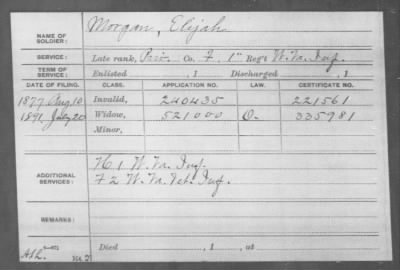 NAME OF SOLDIER: Morgan, Elijah
SERVICE: Late rank, Priv. Co. F, 1" Reg't W. Va. Inf.
TERM OF SERVICE: Enlisted , 1 Discharged , 1
DATE OF FILING. CLASS. APPLICATION NO. LAW. CERTIFICATE NO.
1877 Aug 10 Invalid, 240435 221561
1891 July 20 Widow, 521000 O. 335981
Minor,
ADDITIONAL SERVICES: H. 1 W. Va. Inf.
F 2 W. Va. Vet. Inf.
REMARKS:
Died , 1 , at